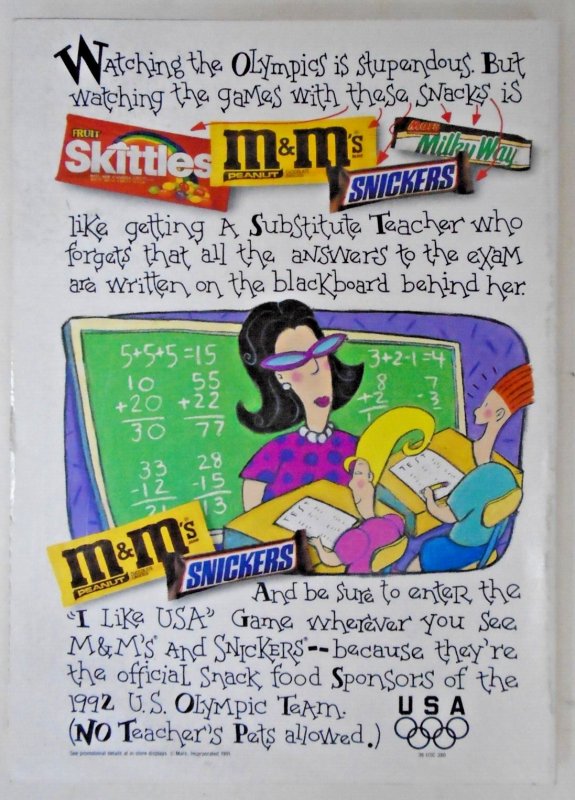 Watching the Olympics is stupendous. But
watching the games with these snacks is
FRUIT
Skittles
m&m's
PEANUT
SNICKERS
Milky Way
like getting A Substitute Teacher who
forgets that all the answers to the exam
are written on the blackboard behind her.
5+5+5=15
3+2-1=4
10
+20
30
55
+22
77
8
+2
7
-3
33
-12
21
28
-15
13
TEST
m&m's
PEANUT
SNICKERS
And be sure to enter the
"I Like USA" Game wherever you see
M&M's® And SNICKERS®--because they're
the official Snack food Sponsors of the
1992 U.S. Olympic Team.
(NO Teacher's Pets allowed.)
USA
See promotional details at in-store displays. © Mars, Incorporated 1991
36 USC 380